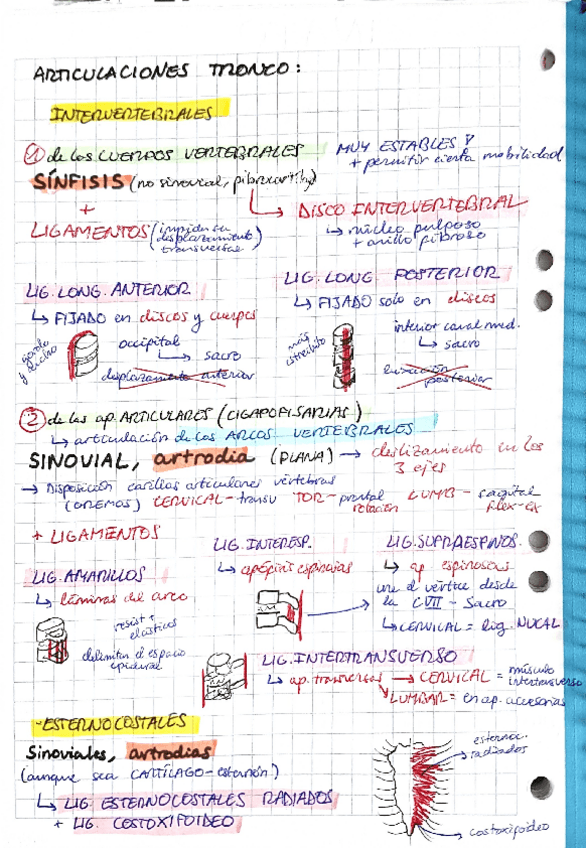 ARTICULACIONES TRONCO:
INTERVERTEBRALES
① de los CUERPOS VERTEBRALES
MUY ESTABLES
+ permitir cierta mobilidad
SÍNFISIS (no sinovial,
+
→ DISCO INTERVERTEBRAL
→ núcleo pulposo
+ anillo fibroso
LIGAMENTOS (impiden su
desplazamiento
transversal)
LIG. LONG. ANTERIOR
→ FIJADO en discos y cuerpos
gordo
y ancho
occipital
→ sacro
desplazamiento anterior
LIG. LONG. POSTERIOR
→ FIJADO solo en discos
más
estrecho
interior canal med.
→ sacro
posterior
② de las ap. ARTICULARES (CIGAPOFISARIAS)
→ articulación de los ARCOS VERTEBRALES
SINOVIAL, artrodia (PLANA) → deslizamiento en los
3 ejes
→ Disposición carillas articulares vértebras
CERVICAL - transv TOR - frontal LUMB - sagital
rotación flex-ex
+ LIGAMENTOS
LIG. AMARILLOS
→ láminas del arco
resist +
elásticos
delimitan el espacio
epidural
LIG. INTERESP.
→ apófisis espinosas
LIG. SUPRAESPINOS.
→ ap. espinosas
une el vértice desde
la CVII - Sacro
→ CERVICAL = lig. NUCAL
LIG. INTERTRANSVERSO
→ ap. transversas → CERVICAL = músculo
intertransverso
LUMBAR = en ap. accesorias
- ESTERNOCOSTALES
Sinoviales, artrodias
(aunque sea CARTÍLAGO - esternón)
→ LIG. ESTERNOCOSTALES RADIADOS
+ LIG. COSTOXIFOIDEO
esternoc.
radiados
costoxifoideo